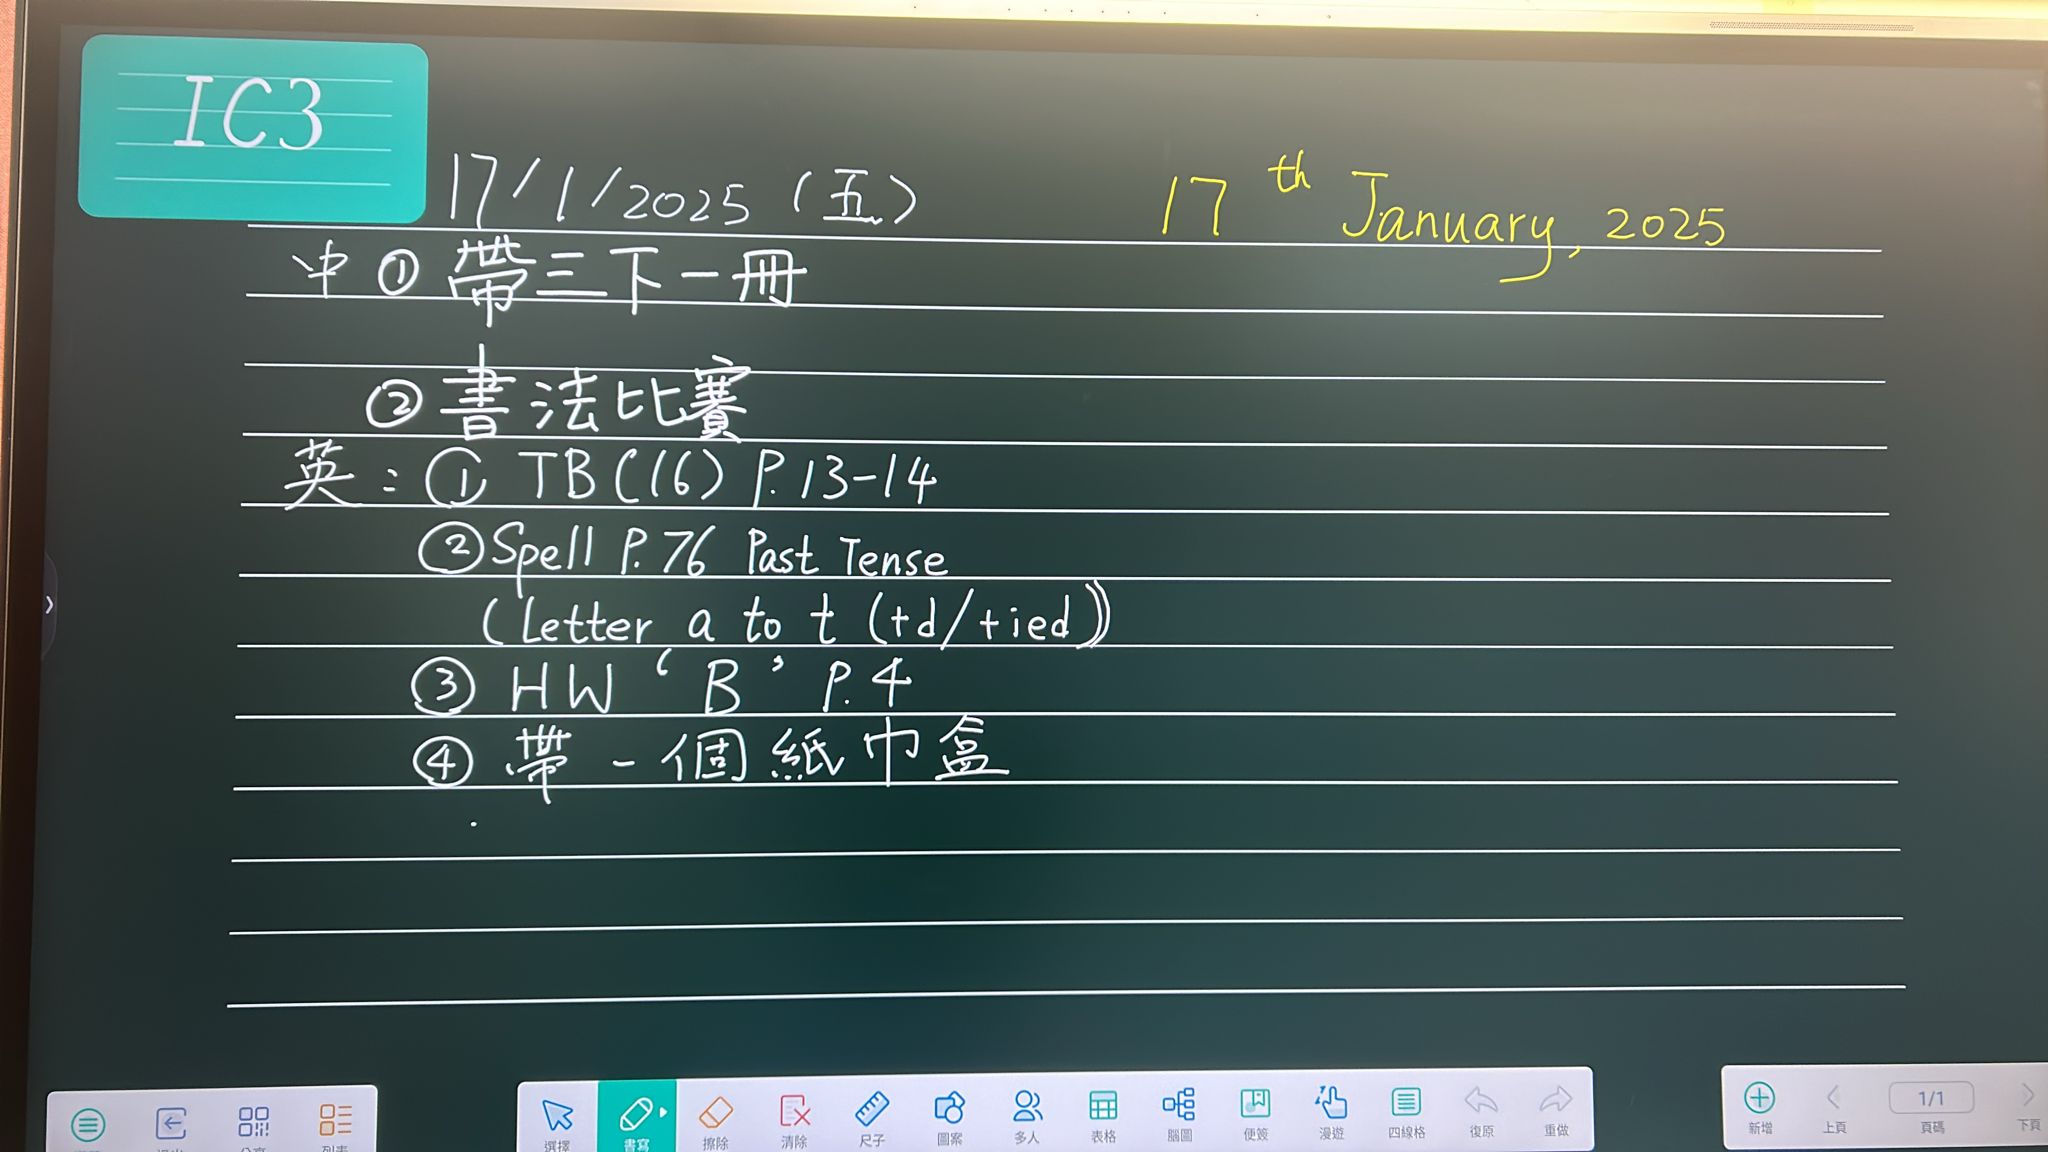 IC3
17/1/2025 (五) 17th January, 2025
中 ① 帶三下一冊
② 書法比賽
英：① TB(16) P.13-14
② Spell P.76 Past Tense
(Letter a to t (+d/+ied))
③ HW 'B' P.4
④ 帶一個紙巾盒
選擇 書寫 擦除 清除 尺子 圖案 多人 表格 腦圖 便簽 漫遊 四線格 復原 重做 新增 上頁 1/1 頁碼 下頁